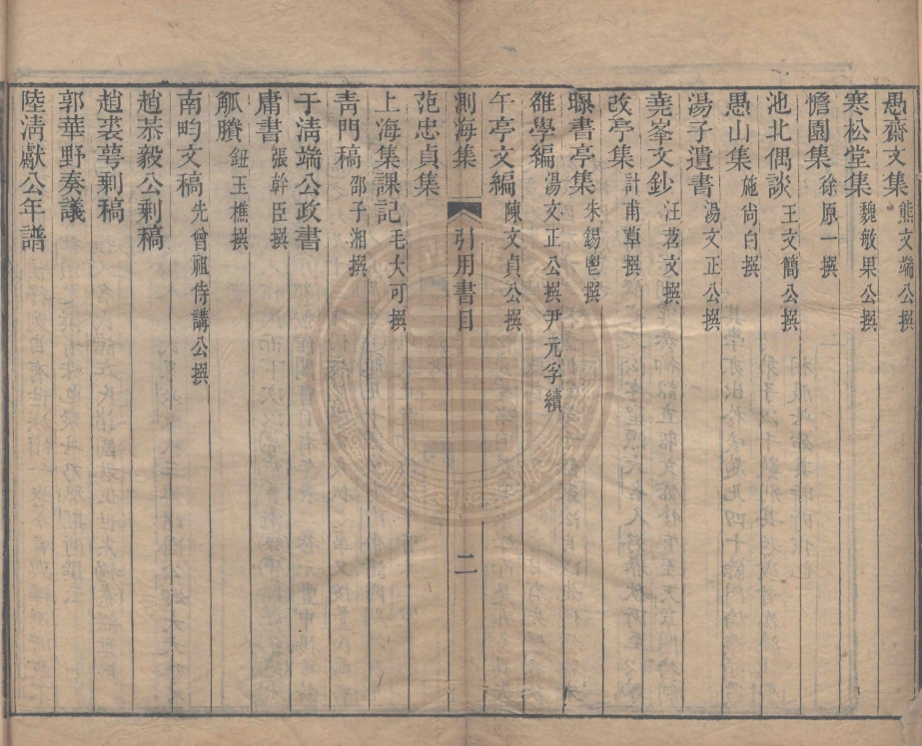 愚齋文集 熊文端公撰
寒松堂集 魏敏果公撰
憺園集 徐原一撰
池北偶談 王文簡公撰
愚山集 施尙白撰
湯子遺書 湯文正公撰
堯峯文鈔 汪苕文撰
改亭集 計甫草撰
曝書亭集 朱錫鬯撰
雒學編 湯文正公撰尹元孚續
午亭文編 陳文貞公撰
測海集 引用書目 二
范忠貞集
上海集課記 毛大可撰
靑門稿 邵子湘撰
于淸端公政書
庸書 張幹臣撰
觚賸 鈕玉樵撰
南畇文稿 先曾祖侍講公撰
趙恭毅公剩稿
趙裘萼剩稿
郭華野奏議
陸淸獻公年譜